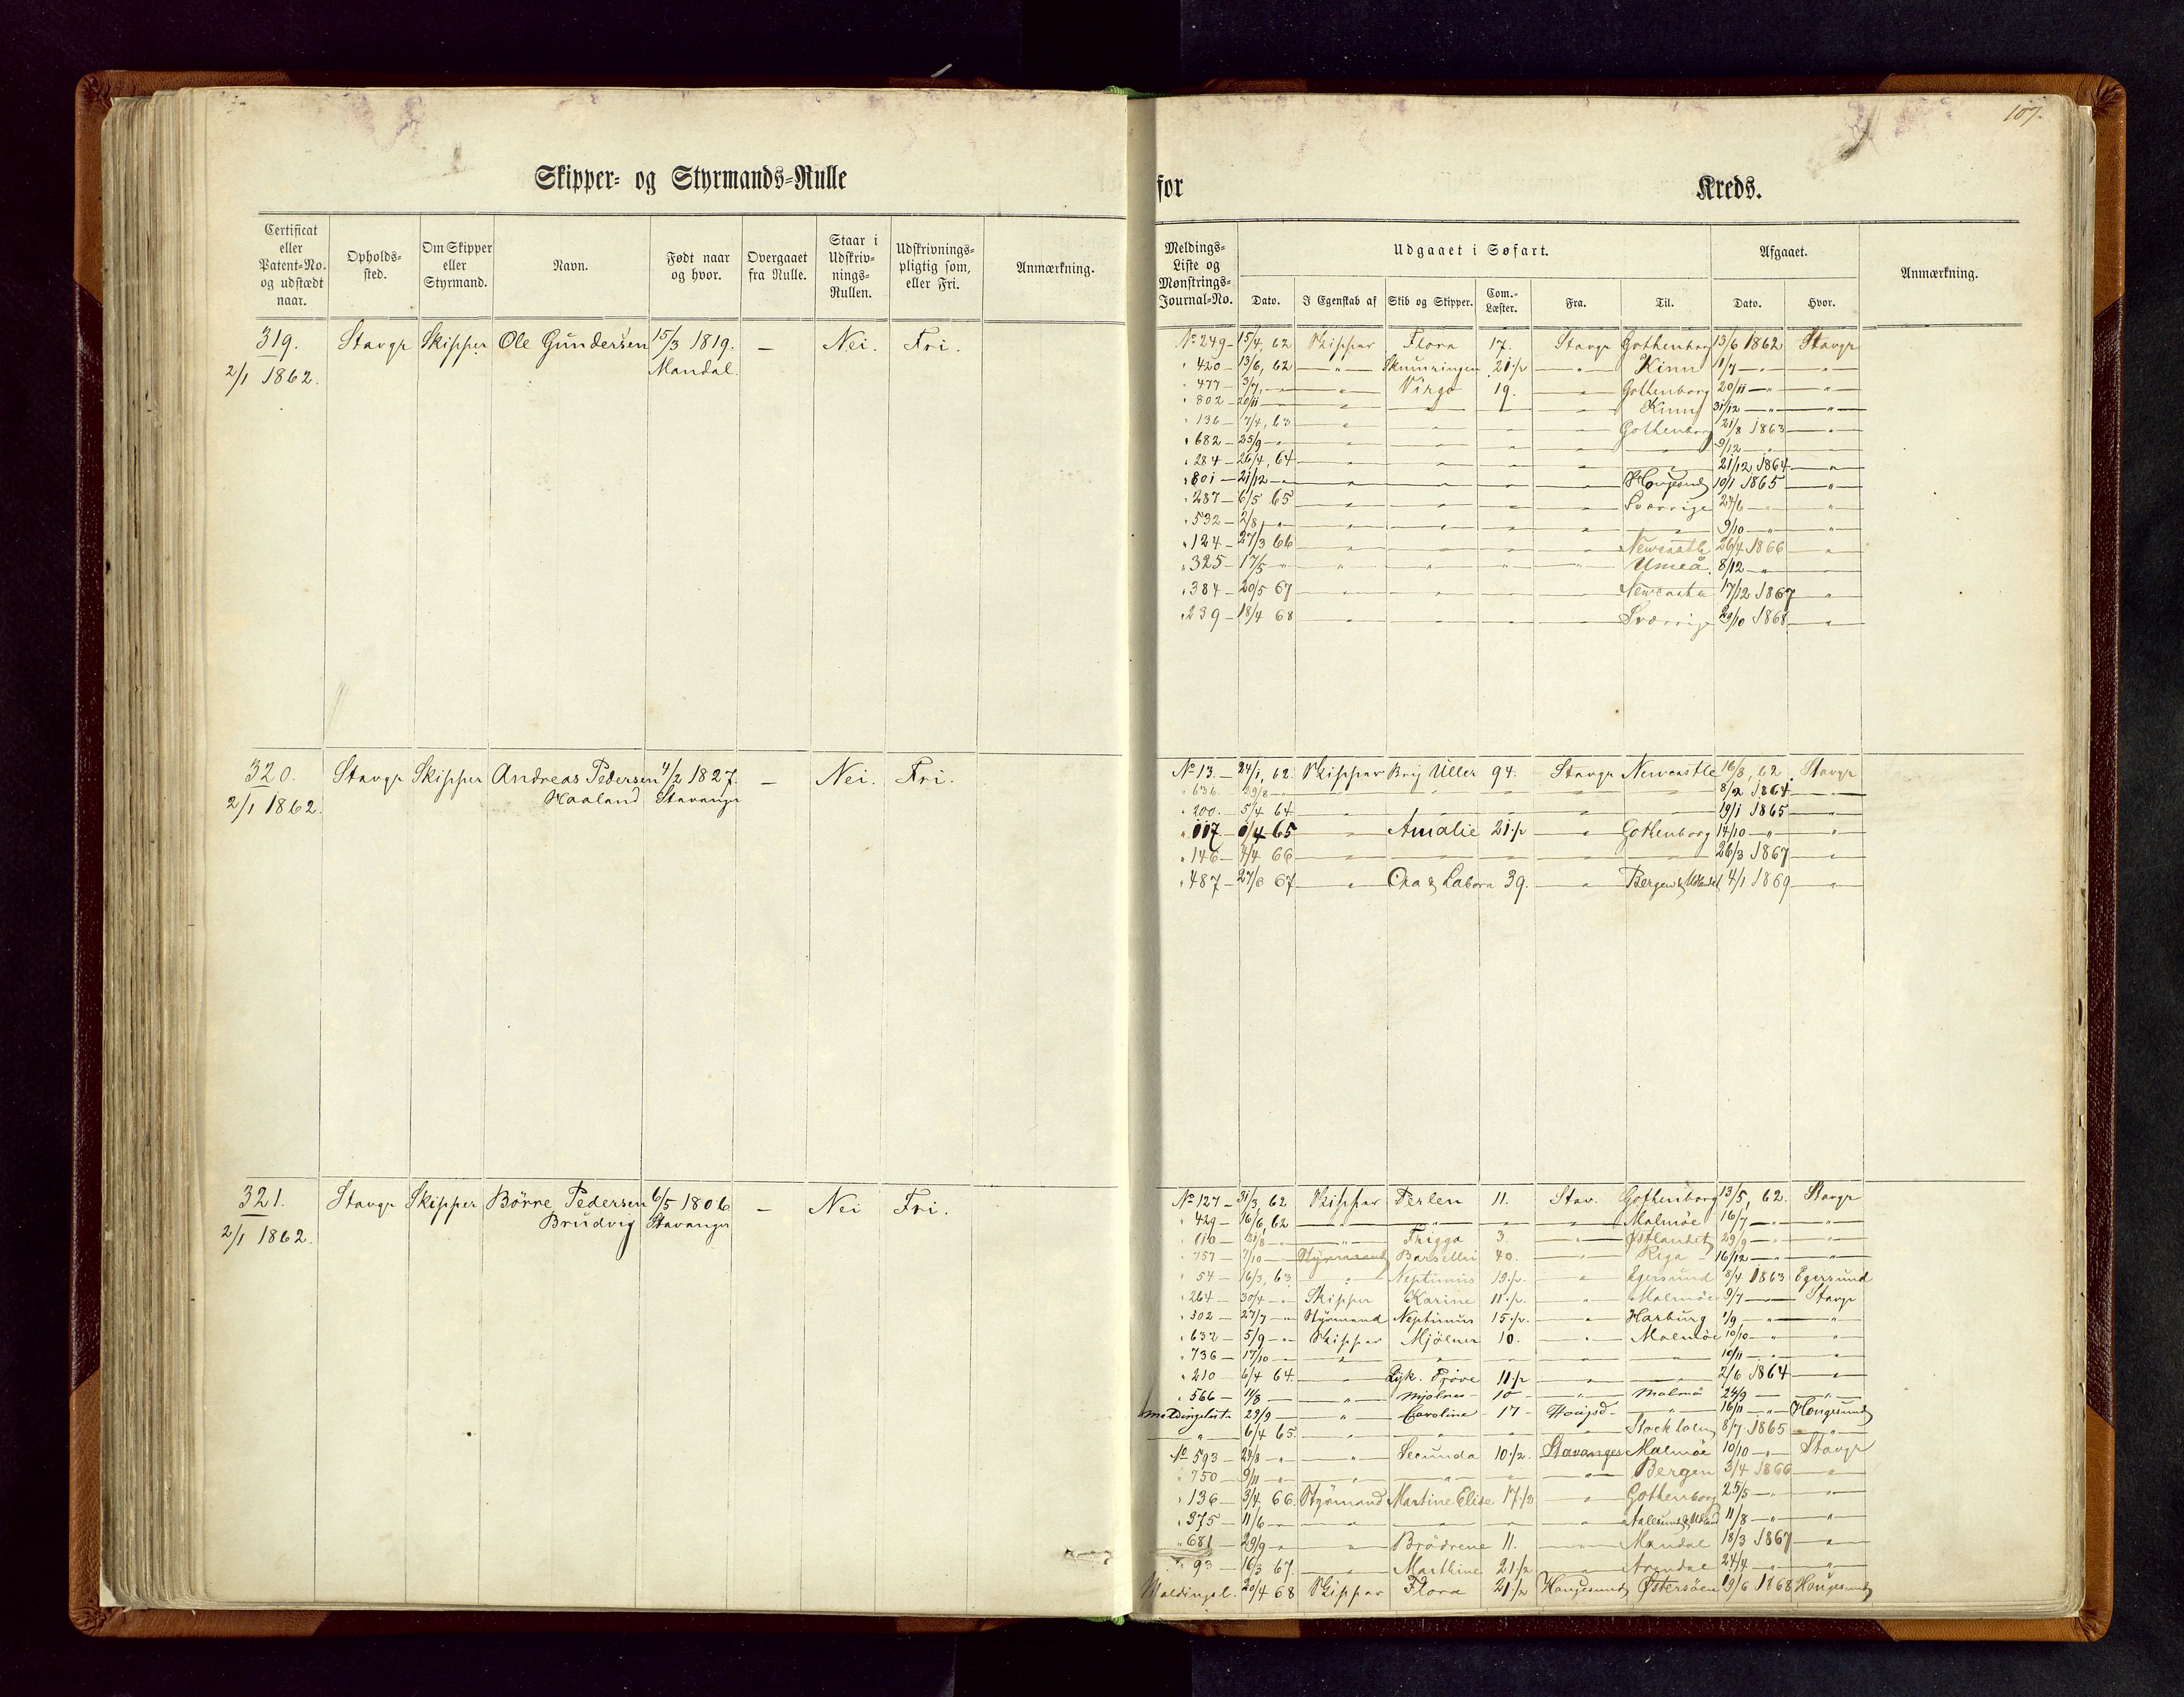 107.
Skipper- og Styrmands-Rulle
for Kreds.
Certificat eller Patent-No. og udstædt naar.
Opholds-sted.
Om Skipper eller Styrmand.
Navn.
Født naar og hvor.
Overgaaet fra Rulle.
Staar i Udskriv-nings-Rullen.
Udskrivnings-pligtig som, eller Fri.
Anmærkning.
Meldings-Liste og Mønstrings-Journal-No.
Udgaaet i Søfart.
Dato. I Egenskab af Skib og Skipper. Com.-Læster. Fra. Til.
Afgaaet.
Dato. Hvor.
Anmærkning.
319. Stavgr Skipper Ole Gundersen 15/3 1819. — Nei. Fri.
2/1 1862. Mandal.
No 249 - 15/4, 62 Skipper Flora 17. Stavgr Gothenborg 13/6 1862 Stavgr
" 420 - 13/6, 62 " Skumringen 21 1/2 " Kinn 1/7 " "
" 477 - 3/7, " " Virgo 19. " Gothenborg 20/11 " "
" 802 - 20/11 " " " " " Kinn 31/12 " "
" 136 - 7/4, 63 " " " " Gothenborg 21/8 1863 "
" 682 - 25/9 " " " " " " 9/12 " "
" 284 - 26/4, 64 " " " " " 21/12 1864 "
" 801 - 21/12 " " " " " Hougesund 10/1 1865 "
" 287 - 6/5 65 " " " " Sverrige 24/6 " "
" 532 - 2/8, " " " " " " 9/10 " "
" 124 - 27/3 66 " " " " Newcastle 26/4 1866 "
" 325 - 17/5 " " " " " Umeå. 8/12 " "
" 384 - 20/5 67 " " " " Newcastle 17/12 1867 "
" 239 - 18/4 68 " " " " Sverrige 29/10 1868 "
320. Stavgr Skipper Andreas Pedersen 4/2 1827. — Nei. Fri.
2/1 1862. Haaland Stavanger
No 13. - 24/1, 62. Skipper Brig Uller 94. Stavgr Newcastle 16/8, 62. Stavgr
" 636. 29/8 " " " " " " 8/2 1864 "
" 200. - 5/4 64 " " " " " 19/1 1865 "
" 117 - 1/4 65 " Amalie 21 1/2 " Gothenborg 14/10 " "
" 146 - 4/4 66 " " " " " 26/3 1867 "
" 487 - 27/6 67 " Ora & Labora 39. " Bergen & Udlandet 4/1 1869 "
321. Stavgr Skipper Börre Pedersen 6/5 1806 — Nei Fri.
2/1 1862. Brudvig Stavanger
No 127 - 31/3, 62 Skipper Perlen 11. Stav. Gothenborg 13/5, 62. Stavgr
" 429 - 16/6, 62 " " " " Malmöe 16/7 " "
" 610 - 21/8 " " Frigga 3. " Østlandet 29/9 " "
" 757 - 7/10 " Styrmand 40. " Riga 16/12 " "
" 54 - 16/3, 63 " Neptunus 15 1/2. " Egersund 8/4 1863 Egersund
" 264 - 30/4 " Skipper Karine 11 1/2. " Malmöe 9/7 " Stavgr
" 502 - 27/7 " Styrmand Neptunus 15 1/2. " Harburg 1/9 " "
" 632 - 5/9 " Skipper Mjölner 10. " Malmöe 10/10 " "
" 736 - 17/10 " " " " " " 10/11 " "
" 210 - 6/4 64. " 11 1/2 " " 2/6 1864 "
" 566 - 11/8 " " Mjölner - 10 - " Malmö 24/9 " "
Meldingsliste 29/9 " " Caroline - 17 - Hougsd - " 16/11 " Hougesund
" 6/4 65. " " " " Stockholm 8/7 1865 "
No 593 - 24/8 " " Secunda 10 1/2. Stavanger Malmöe 10/10 " Stavgr
" 750 - 9/11 " " " " " Bergen 3/4 1866 "
" 136 - 3/4, 66. Styrmand Martine Elise 17 1/2 " Gothenborg 25/5 " "
" 375 - 11/6 " " " " " Aalesund & Udland 11/8 " "
" 681 - 29/9 " " Brödrene 11. " Mandal 18/3 1867 "
" 93 - 16/3 67. " Marthine 21 1/2 " Arendal 24/4 " "
Meldingsl. 20/4 68 Skipper Flora 21 1/2 Hougesund Østersöen 19/6 1868 Hougesund